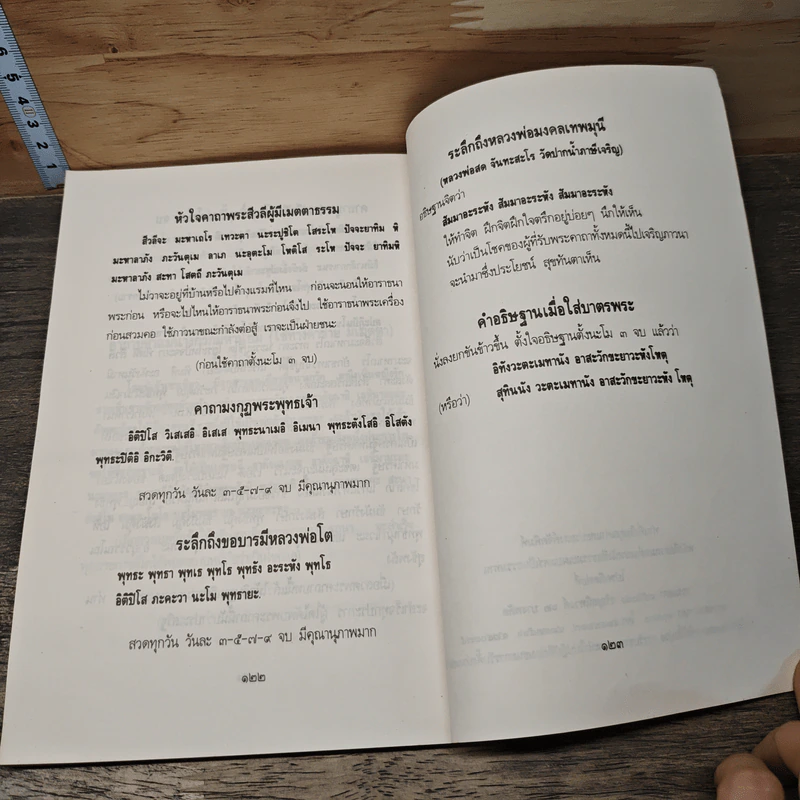 หัวใจคาถาพระสีวลีผู้มีเมตตาธรรม
สีวลีจะ มะหาเถโร เทวะตา นะระปูชิโต โสระโห ปัจจะยาทิม หิ
มะหาลาภัง ภะวันตุเม ลาเภ นะอุตะโม โหติโส ระโห ปัจจะ ยาทิมหิ
มะหาลาภัง สะทา โสตถี ภะวันตุเม
ไม่ว่าจะอยู่ที่บ้านหรือไปค้างแรมที่ไหน ก่อนจะนอนให้อาราธนา
พระก่อน หรือจะไปไหนให้อาราธนาพระก่อนจึงไป ใช้อาราธนาพระเครื่อง
ก่อนสวมคอ ใช้ภาวนาขณะกำลังต่อสู้ เราจะเป็นฝ่ายชนะ
(ก่อนใช้คาถาตั้งนะโม ๓ จบ)
คาถามงกุฎพระพุทธเจ้า
อิติปิโส วิเสเสอิ อิเสเส พุทธะนาเมอิ อิเมนา พุทธะตังโสอิ อิโสตัง
พุทธะปิติอิ อิกะวิติ.
สวดทุกวัน วันละ ๓-๕-๗-๙ จบ มีคุณานุภาพมาก
ระลึกถึงขอบารมีหลวงพ่อโต
พุทธะ พุทธา พุทเธ พุทโธ พุทธัง อะระหัง พุทโธ
อิติปิโส ภะคะวา นะโม พุทธายะ.
สวดทุกวัน วันละ ๓-๕-๗-๙ จบ มีคุณานุภาพมาก
๑๒๒
ระลึกถึงหลวงพ่อมงคลเทพมุนี
(หลวงพ่อสด จันทะสะโร วัดปากน้ำภาษีเจริญ)
อธิษฐานจิตว่า
สัมมาอะระหัง สัมมาอะระหัง สัมมาอะระหัง
ให้ทำจิต ฝึกจิตฝึกใจตรึกอยู่บ่อยๆ นึกให้เห็น
นับว่าเป็นโชคของผู้ที่รับพระคาถาทั้งหมดนี้ไปเจริญภาวนา
จะนำมาซึ่งประโยชน์ สุขทันตาเห็น
คำอธิษฐานเมื่อใส่บาตรพระ
นั่งลงยกขันข้าวขึ้น ตั้งใจอธิษฐานตั้งนะโม ๓ จบ แล้วว่า
อิทังวะตะเมทานัง อาสะวักขะยาวะหังโหตุ
(หรือว่า) สุทินนัง วะตะเมทานัง อาสะวักขะยาวะหัง โหตุ
๑๒๓
6 5 4 3 2 1